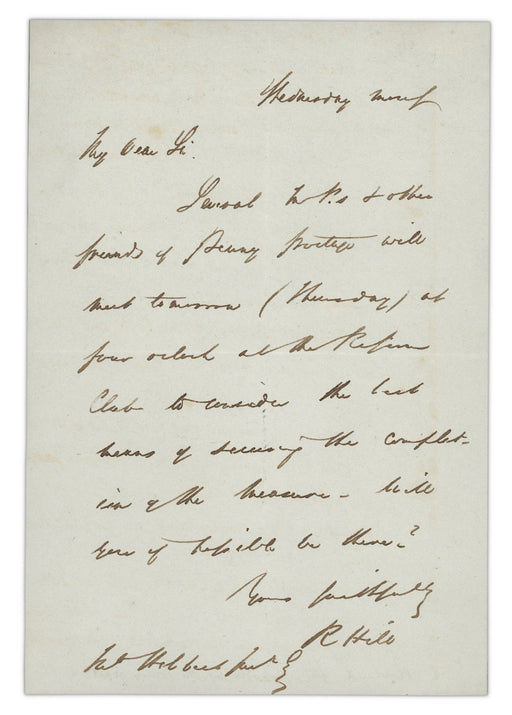 Wednesday morng
My Dear Sir.
Several M.P.s & other
friends of Penny Postage will
meet tomorrow (Thursday) at
four o'clock at the Reform
Club to consider the best
means of securing the complet-
ion of the measure - Will
you if possible be there?
Yours faithfully
R Hill
Hibbert Jun